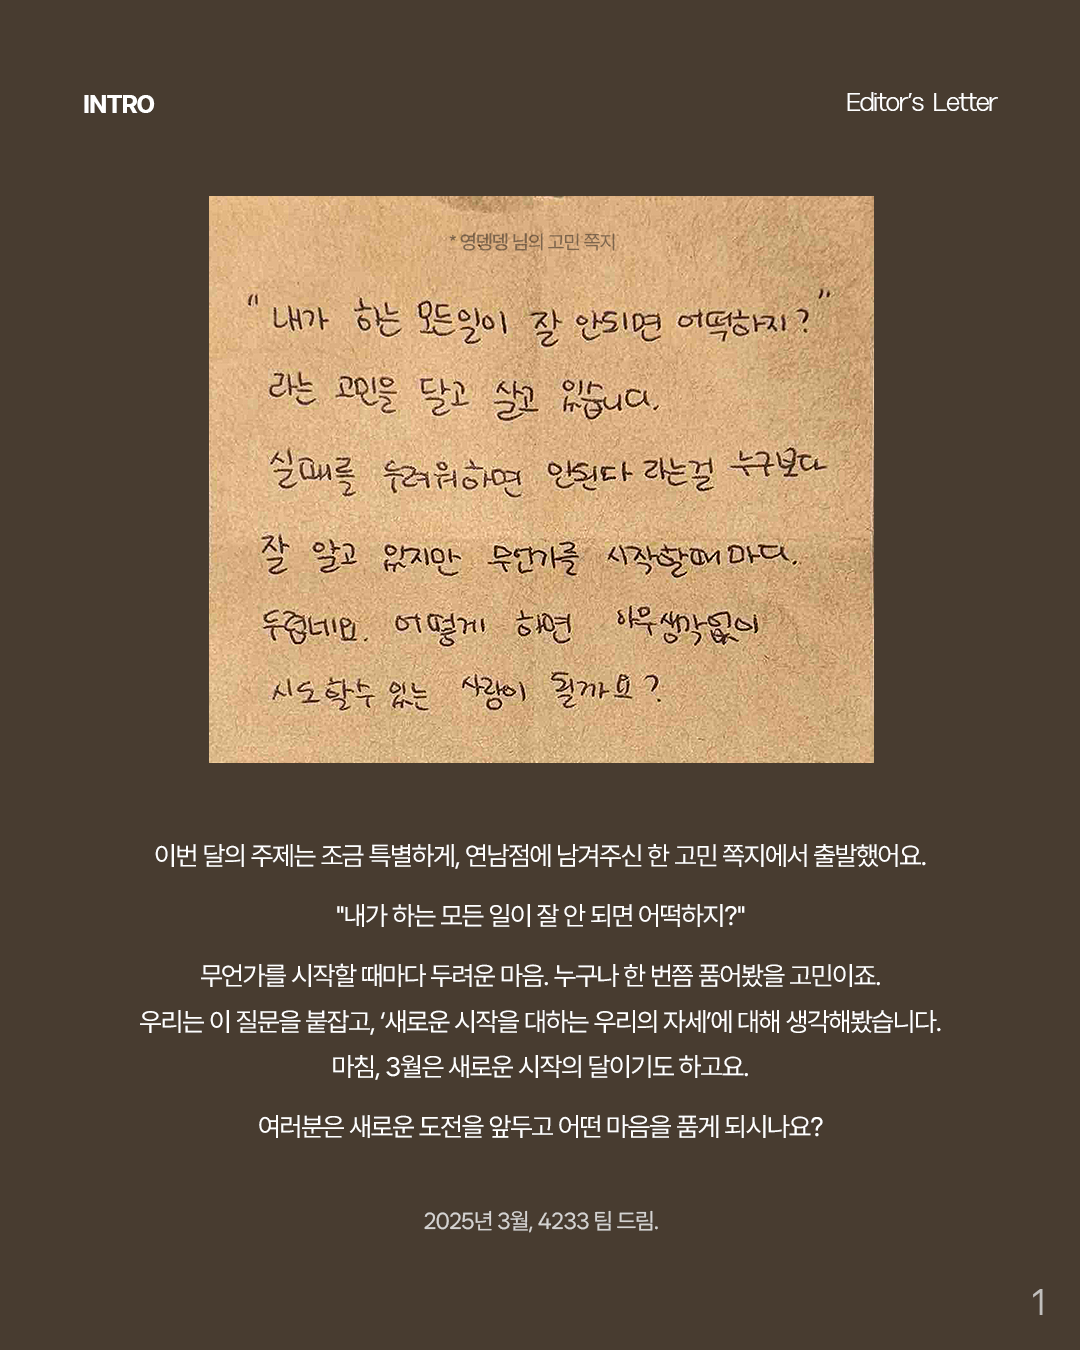 INTRO
Editor's Letter
* 영뎅뎅 님의 고민 쪽지
" 내가 하는 모든일이 잘 안되면 어떡하지? "
라는 고민을 달고 살고 있습니다.
실패를 두려워하면 안된다 라는걸 누구보다
잘 알고 있지만 무언가를 시작할때 마다.
두렵네요. 어떻게 하면 아무생각없이
시도할수 있는 사람이 될까요?
이번 달의 주제는 조금 특별하게, 연남점에 남겨주신 한 고민 쪽지에서 출발했어요.
"내가 하는 모든 일이 잘 안 되면 어떡하지?"
무언가를 시작할 때마다 두려운 마음. 누구나 한 번쯤 품어봤을 고민이죠.
우리는 이 질문을 붙잡고, ‘새로운 시작을 대하는 우리의 자세’에 대해 생각해봤습니다.
마침, 3월은 새로운 시작의 달이기도 하고요.
여러분은 새로운 도전을 앞두고 어떤 마음을 품게 되시나요?
2025년 3월, 4233 팀 드림.
1